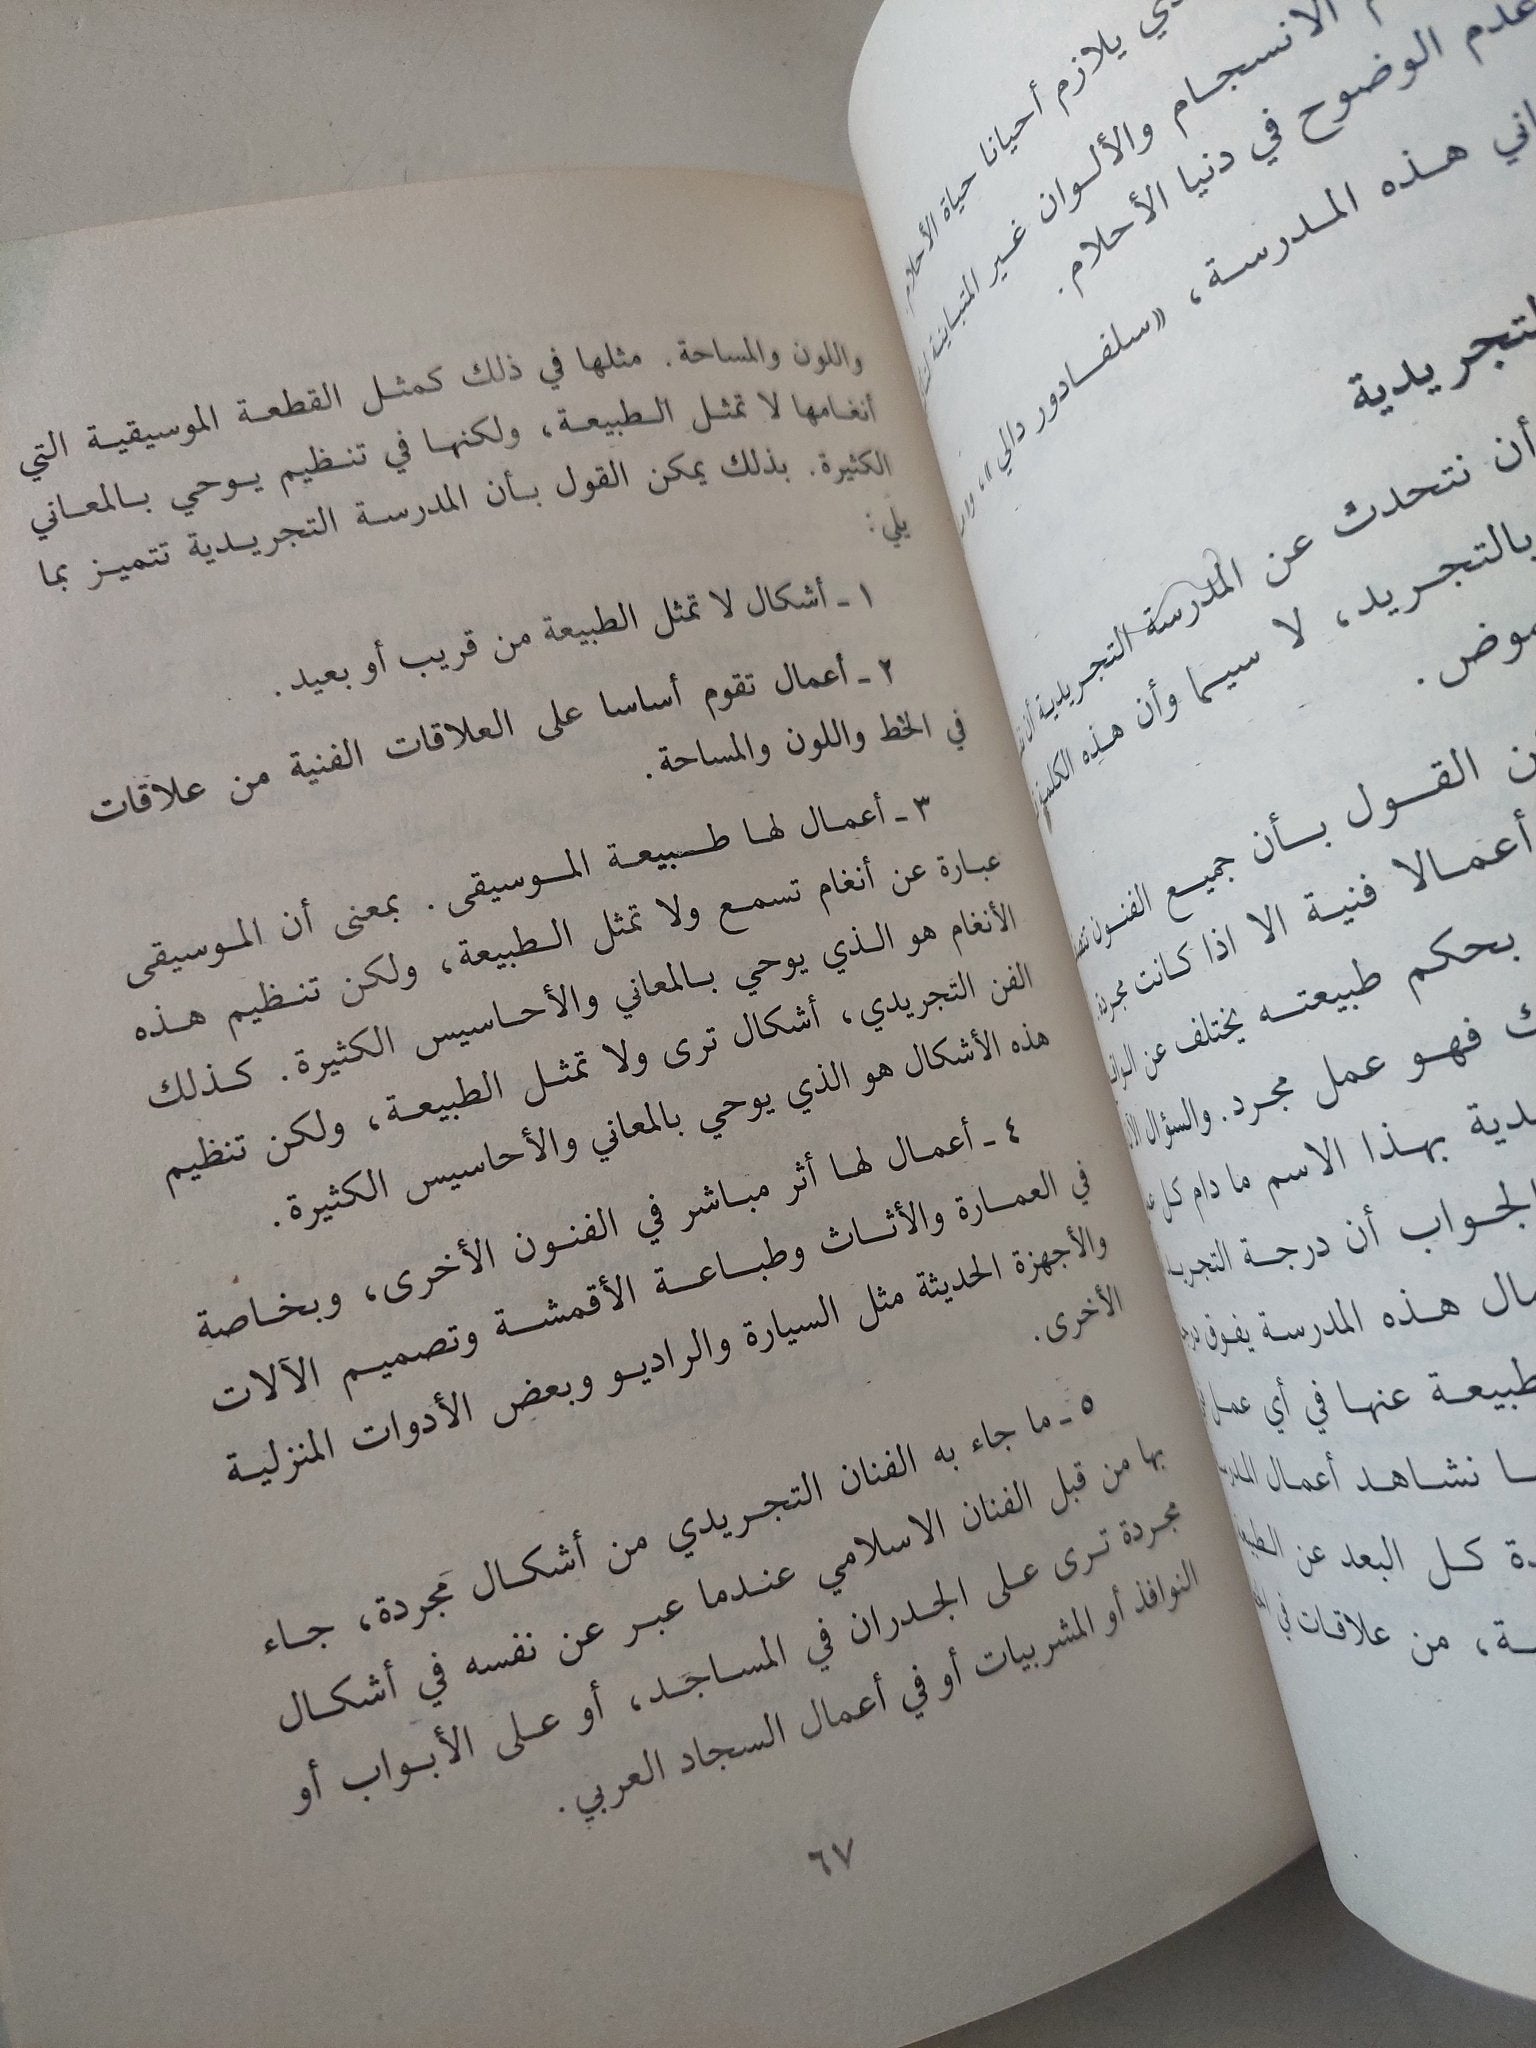 ي يلازم أحيانا حياة الأحلام
الانسجام والألوان غير المتباينة
عدم الوضوح في دنيا الأحلام.
هذه المدرسة، «سلفادور دالي»،
التجريدية
أن نتحدث عن المدرسة التجريدية أن
بالتجريد، لا سيما وأن هذه الكلمة
موض.
القول بأن جميع الفنون
أعمالا فنية الا اذا كانت مجردة.
بحكم طبيعته يختلف عن
فهو عمل مجرد. والسؤال
دية بهذا الاسم ما دام كل
الجواب أن درجة
ال هذه المدرسة يفوق
طبيعة عنها في أي عمل
ا نشاهد أعمال
ة كل البعد عن
ة، من علاقات في
واللون والمساحة. مثلها في ذلك كمثل القطعة الموسيقية التي
أنغامها لا تمثل الطبيعة، ولكنها في تنظيم يوحي بالمعاني
الكثيرة. بذلك يمكن القول بأن المدرسة التجريدية تتميز بما
يلي:
١ ـ أشكال لا تمثل الطبيعة من قريب أو بعيد.
٢ ـ أعمال تقوم أساسا على العلاقات الفنية من علاقات
في الخط واللون والمساحة.
٣ ـ أعمال لها طبيعة الموسيقى. بمعنى أن الموسيقى
عبارة عن أنغام تسمع ولا تمثل الطبيعة، ولكن تنظيم هذه
الأنغام هو الذي يوحي بالمعاني والأحاسيس الكثيرة. كذلك
الفن التجريدي، أشكال ترى ولا تمثل الطبيعة، ولكن تنظيم
هذه الأشكال هو الذي يوحي بالمعاني والأحاسيس الكثيرة.
٤ ـ أعمال لها أثر مباشر في الفنون الأخرى، وبخاصة
في العمارة والأثاث وطباعة الأقمشة وتصميم الآلات
والأجهزة الحديثة مثل السيارة والراديو وبعض الأدوات المنزلية
الأخرى.
٥ ـ ما جاء به الفنان التجريدي من أشكال مجردة، جاء
بها من قبل الفنان الاسلامي عندما عبر عن نفسه في أشكال
مجردة ترى على الجدران في المساجد، أو على الأبواب أو
النوافذ أو المشربيات أو في أعمال السجاد العربي.
٦٧